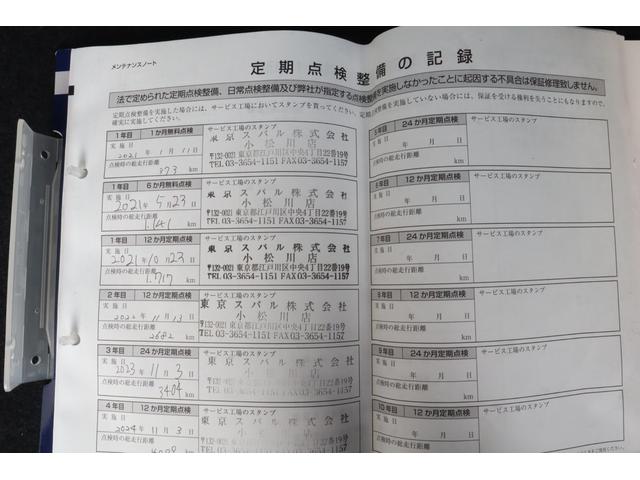 メンテナンスノート
定期点検整備の記録
法で定められた定期点検整備、日常点検整備及び弊社が指定する点検整備を実施しなかったことに起因する不具合は保証修理致しません。
1年目 1か月無料点検 サービス工場のスタンプ
実施日
2021年 1月 11日
点検時の総走行距離
373 km
東京スバル株式会社
小松川店
〒132-0021 東京都江戸川区中央4丁目22番19号
TEL 03-3654-1151 FAX 03-3654-
1年目 6か月無料点検 サービス工場のスタンプ
実施日
2021年 5月 23日
点検時の総走行距離
1,141 km
東京スバル株式会社
小松川店
〒132-0021 東京都江戸川区中央4丁目22番19号
TEL 03-3654-1151 FAX 03-3654-
1年目 12か月定期点検 サービス工場のスタンプ
実施日
2021年 10月 23日
点検時の総走行距離
km
東京スバル株式会社
小松川店
〒132-0021 東京都江戸川区中央4丁目22番19号
TEL 03-3654-1151 FAX 03-3654-
2年目 12か月定期点検 サービス工場のスタンプ
実施日
2022年 11月 13日
点検時の総走行距離
2682 km
東京スバル株式会社
小松川店
〒132-0021 東京都江戸川区中央4丁目22番19号
TEL 03-3654-1151 FAX 03-3654-
3年目 24か月定期点検 サービス工場のスタンプ
実施日
2023年 11月 3日
点検時の総走行距離
3404 km
東京スバル株式会社
小松川店
4年目 12か月定期点検 サービス工場のスタンプ
実施日
2024年 11月 3日
点検時の総走行距離
東京スバル株式会社
小松川店
24か月定期点検 サービス工場のスタンプ
年 月 日
点検時の総走行距離
km
12か月定期点検 サービス工場のスタンプ
実施日
年 月 日
点検時の総走行距離
km
7年目 24か月定期点検 サービス工場のスタンプ
実施日
年 月 日
点検時の総走行距離
km
8年目 12か月定期点検 サービス工場のスタンプ
実施日
年 月 日
点検時の総走行距離
km
9年目 24か月定期点検 サービス工場のスタンプ
実施日
年 月 日
点検時の総走行距離
km
10年目 12か月定期点検 サービス工場のスタンプ
実施日
年 月 日
点検時の総走行距離
km